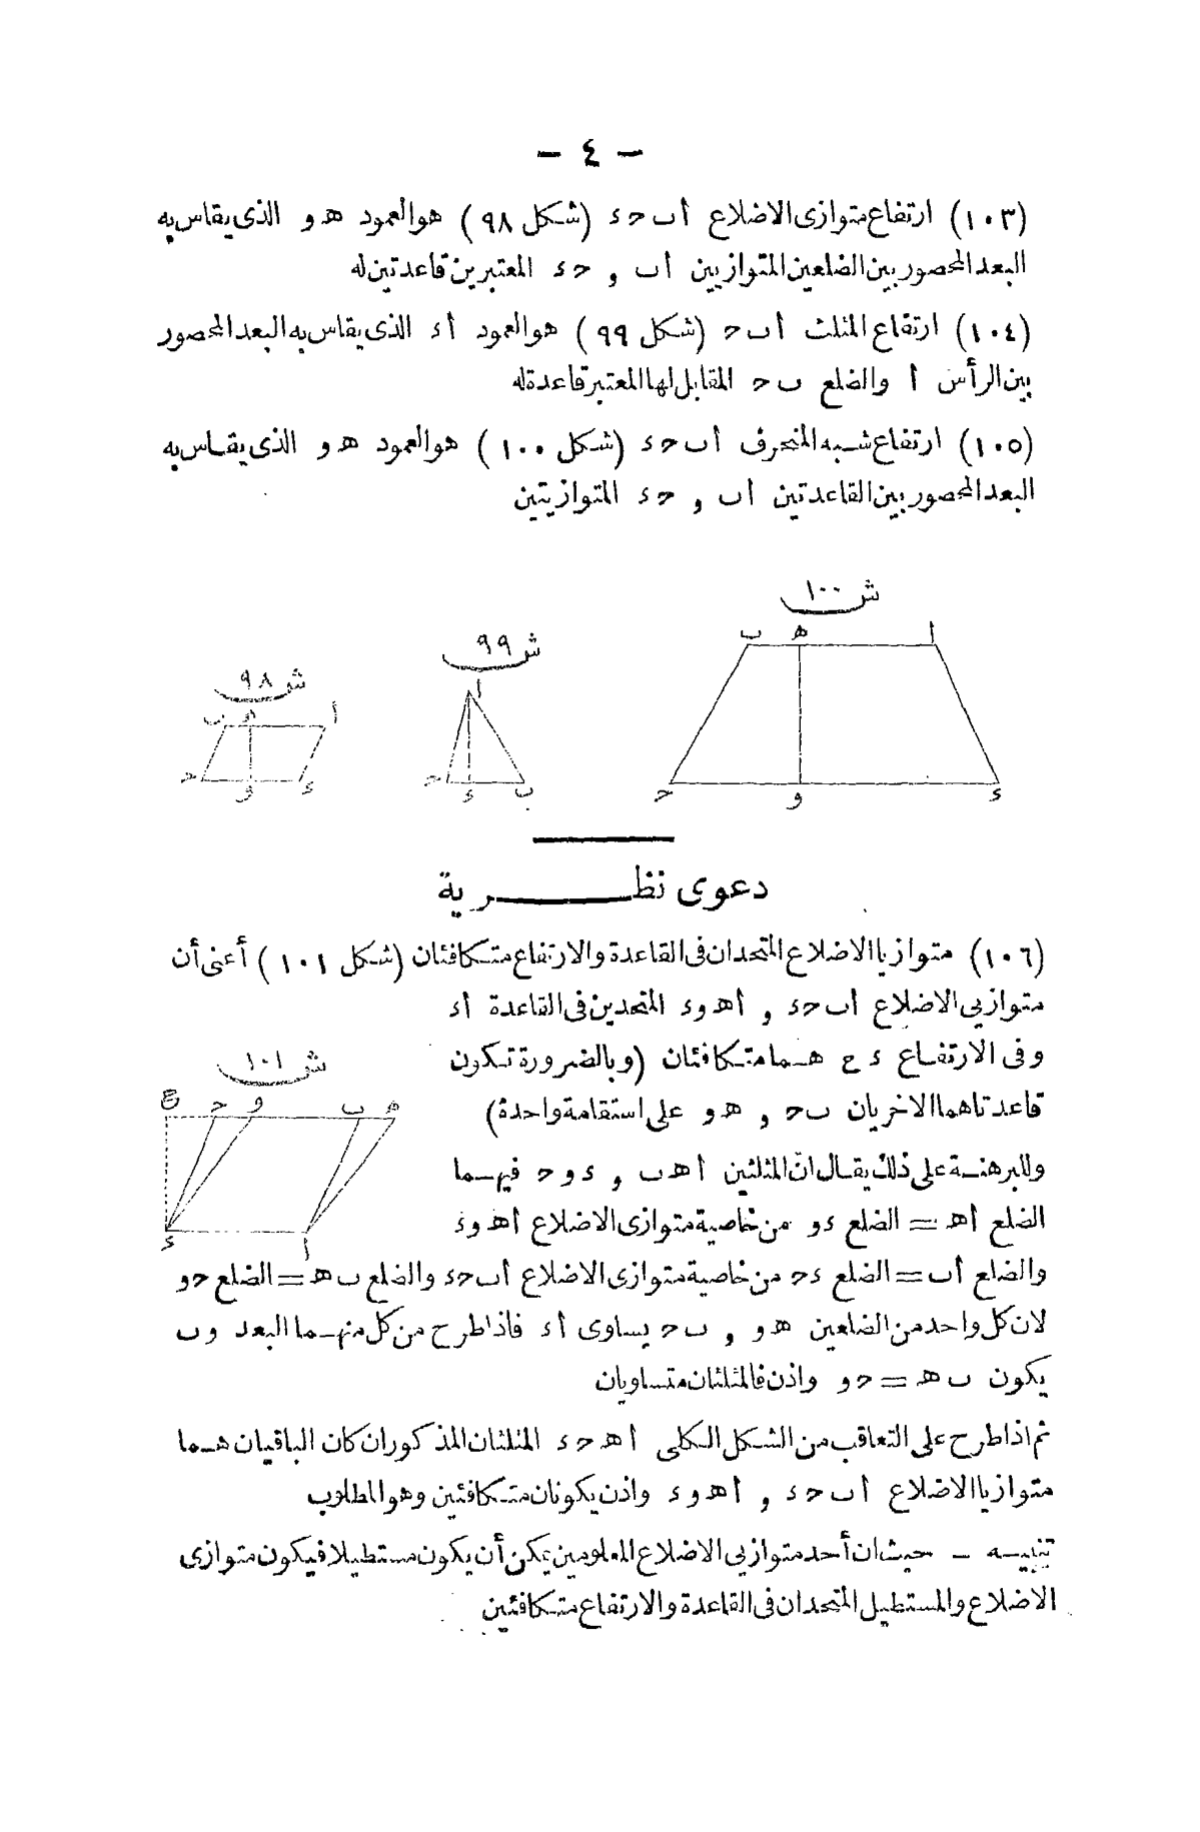 - ٤ -
(١٠٣) ارتفاع متوازى الاضلاع أ ب ح ء (شكل ٩٨) هو العمود ه و الذى يقاس به
البعد المحصور بين الضلعين المتوازيين أ ب , ح ء المعتبرين قاعدتين له
(١٠٤) ارتفاع المثلث أ ب ح (شكل ٩٩) هو العمود أ ء الذى يقاس به البعد المحصور
بين الرأس أ والضلع ب ح المقابل لها المعتبر قاعدة له
(١٠٥) ارتفاع شبه المنحرف أ ب ح ء (شكل ١٠٠) هو العمود ه و الذى يقاس به
البعد المحصور بين القاعدتين أ ب , ح ء المتوازيتين
ش ١٠٠
أ ه ب
ح و ء
ش ٩٩
أ
ح ء ب
ش ٩٨
أ ه ب
ح و ء
دعوى نظرية
(١٠٦) متوازيا الاضلاع المتحدان فى القاعدة والارتفاع متكافئان (شكل ١٠١) أعنى أن
متوازيى الاضلاع أ ب ح ء , أ ه و ء المتحدين فى القاعدة أ ء
وفى الارتفاع ء ع هما متكافئان (وبالضرورة تكون
قاعدتاهما الاخريان ب ح , ه و على استقامة واحدة)
وللبرهنة على ذلك يقال انّ المثلثين أ ه ب , ء و ح فيهما
الضلع أ ه = الضلع ء و من خاصية متوازى الاضلاع أ ه و ء
ش ١٠١
ه ب و ح ع
أ ء
والضلع أ ب = الضلع ء ح من خاصية متوازى الاضلاع أ ب ح ء والضلع ب ه = الضلع ح و
لان كل واحد من الضلعين ه و , ب ح يساوى أ ء فاذا طرح من كل منهما البعد و ب
يكون ب ه = ح و واذن فالمثلثان متساويان
ثم اذا طرح على التعاقب من الشكل الكلى أ ه ح ء المثلثان المذكوران كان الباقيان هما
متوازيا الاضلاع أ ب ح ء , أ ه و ء واذن يكونان متكافئين وهو المطلوب
تنبيه - حيث ان أحد متوازيى الاضلاع المعلومين يمكن أن يكون مستطيلا فيكون متوازى
الاضلاع والمستطيل المتحدان فى القاعدة والارتفاع متكافئين